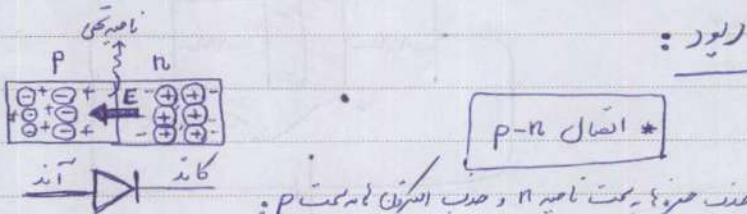 دیود :
ناحیه تهی
P n
E
* اتصال p-n
آند کاتد
جذب حفره ها به سمت ناحیه n و جذب الکترون ها به سمت p .